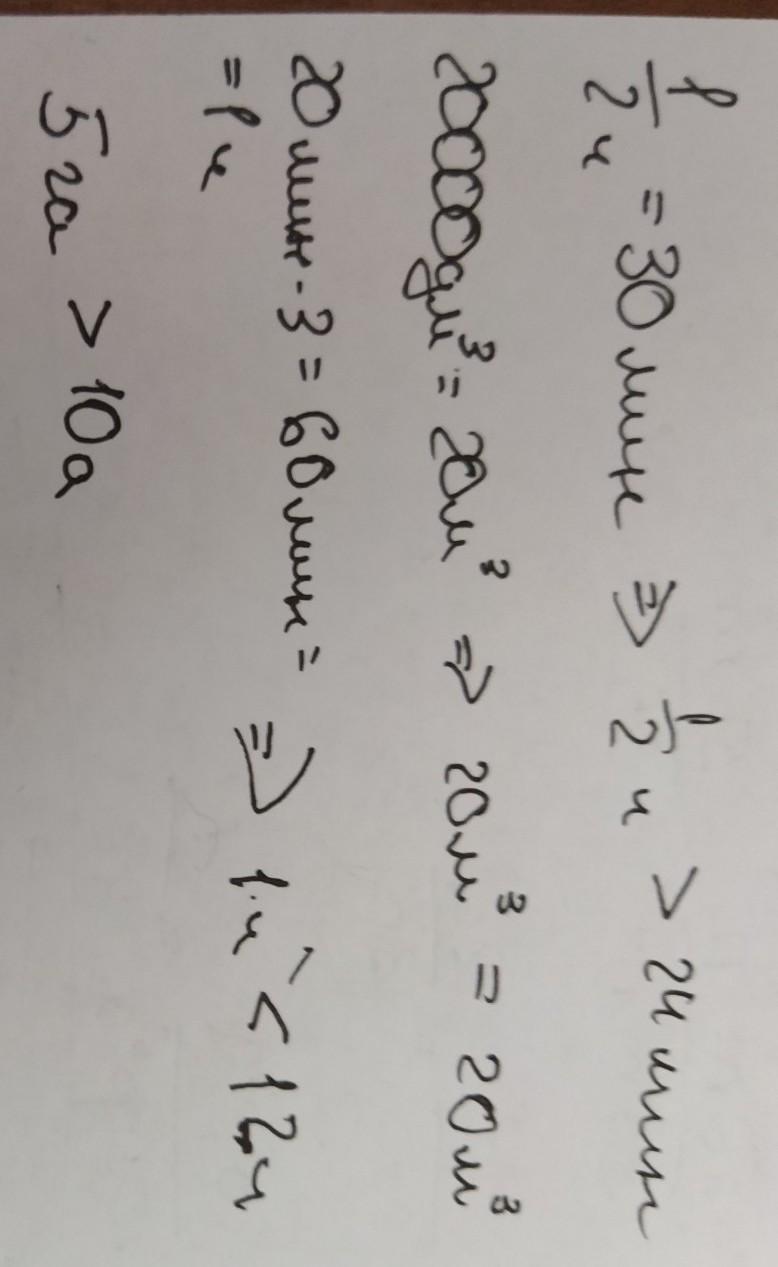 1/2 ч = 30 мин ⇒ 1/2 ч > 24 мин
20000дм³ = 20м³ ⇒ 20м³ = 20м³
20 мин · 3 = 60 мин = ⇒ 1 ч < 12ч
= 1 ч
5 га > 10а